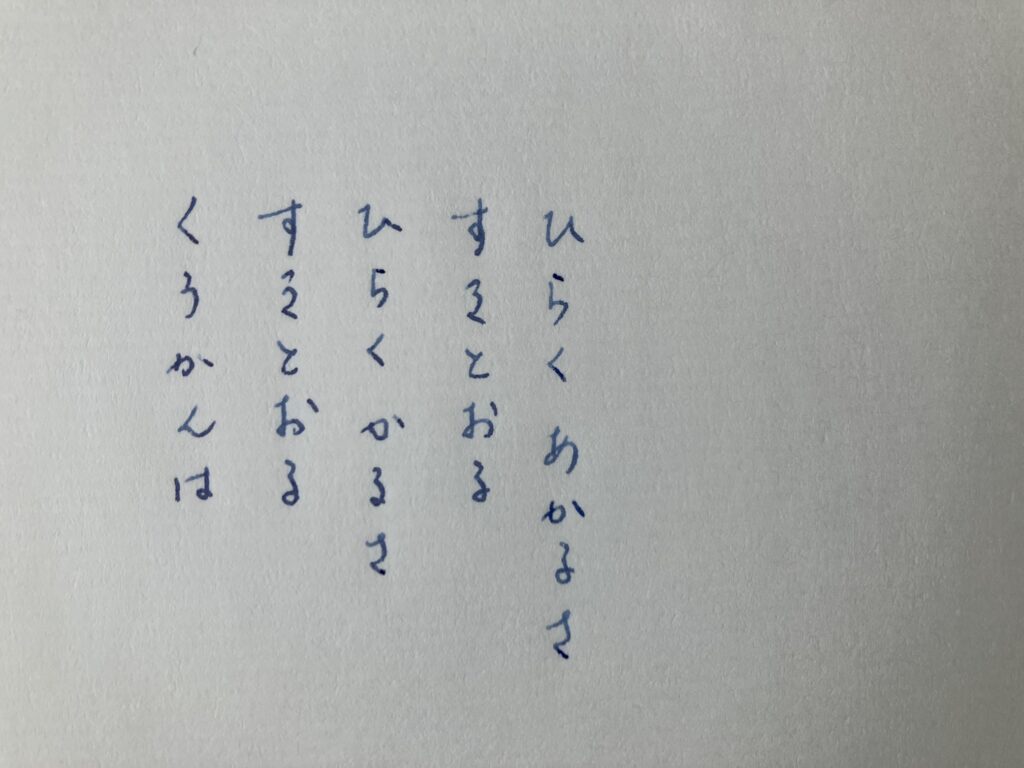 ひらく あかるさ
すきとおる
ひらく かるさ
すきとおる
くうかんは